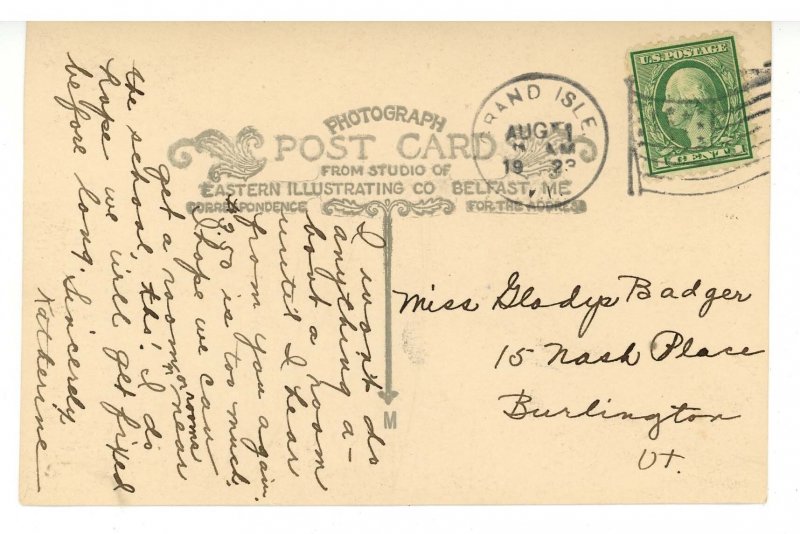 PHOTOGRAPH
POST CARD
FROM STUDIO OF
EASTERN ILLUSTRATING CO BELFAST, ME
CORRESPONDENCE
FOR THE ADDRESS
M
GRAND ISLE
AUG
AM
19
U.S. POSTAGE
1 CENT 1
I won't do
anything a-
bout a room
until I hear
from you again.
$3.50 is too much.
I hope we can
get a room or rooms near
the school, tho'. I do
hope we will get fixed
before long. Sincerely
Katherine
Miss Gladys Badger
15 Nash Place
Burlington
Vt.